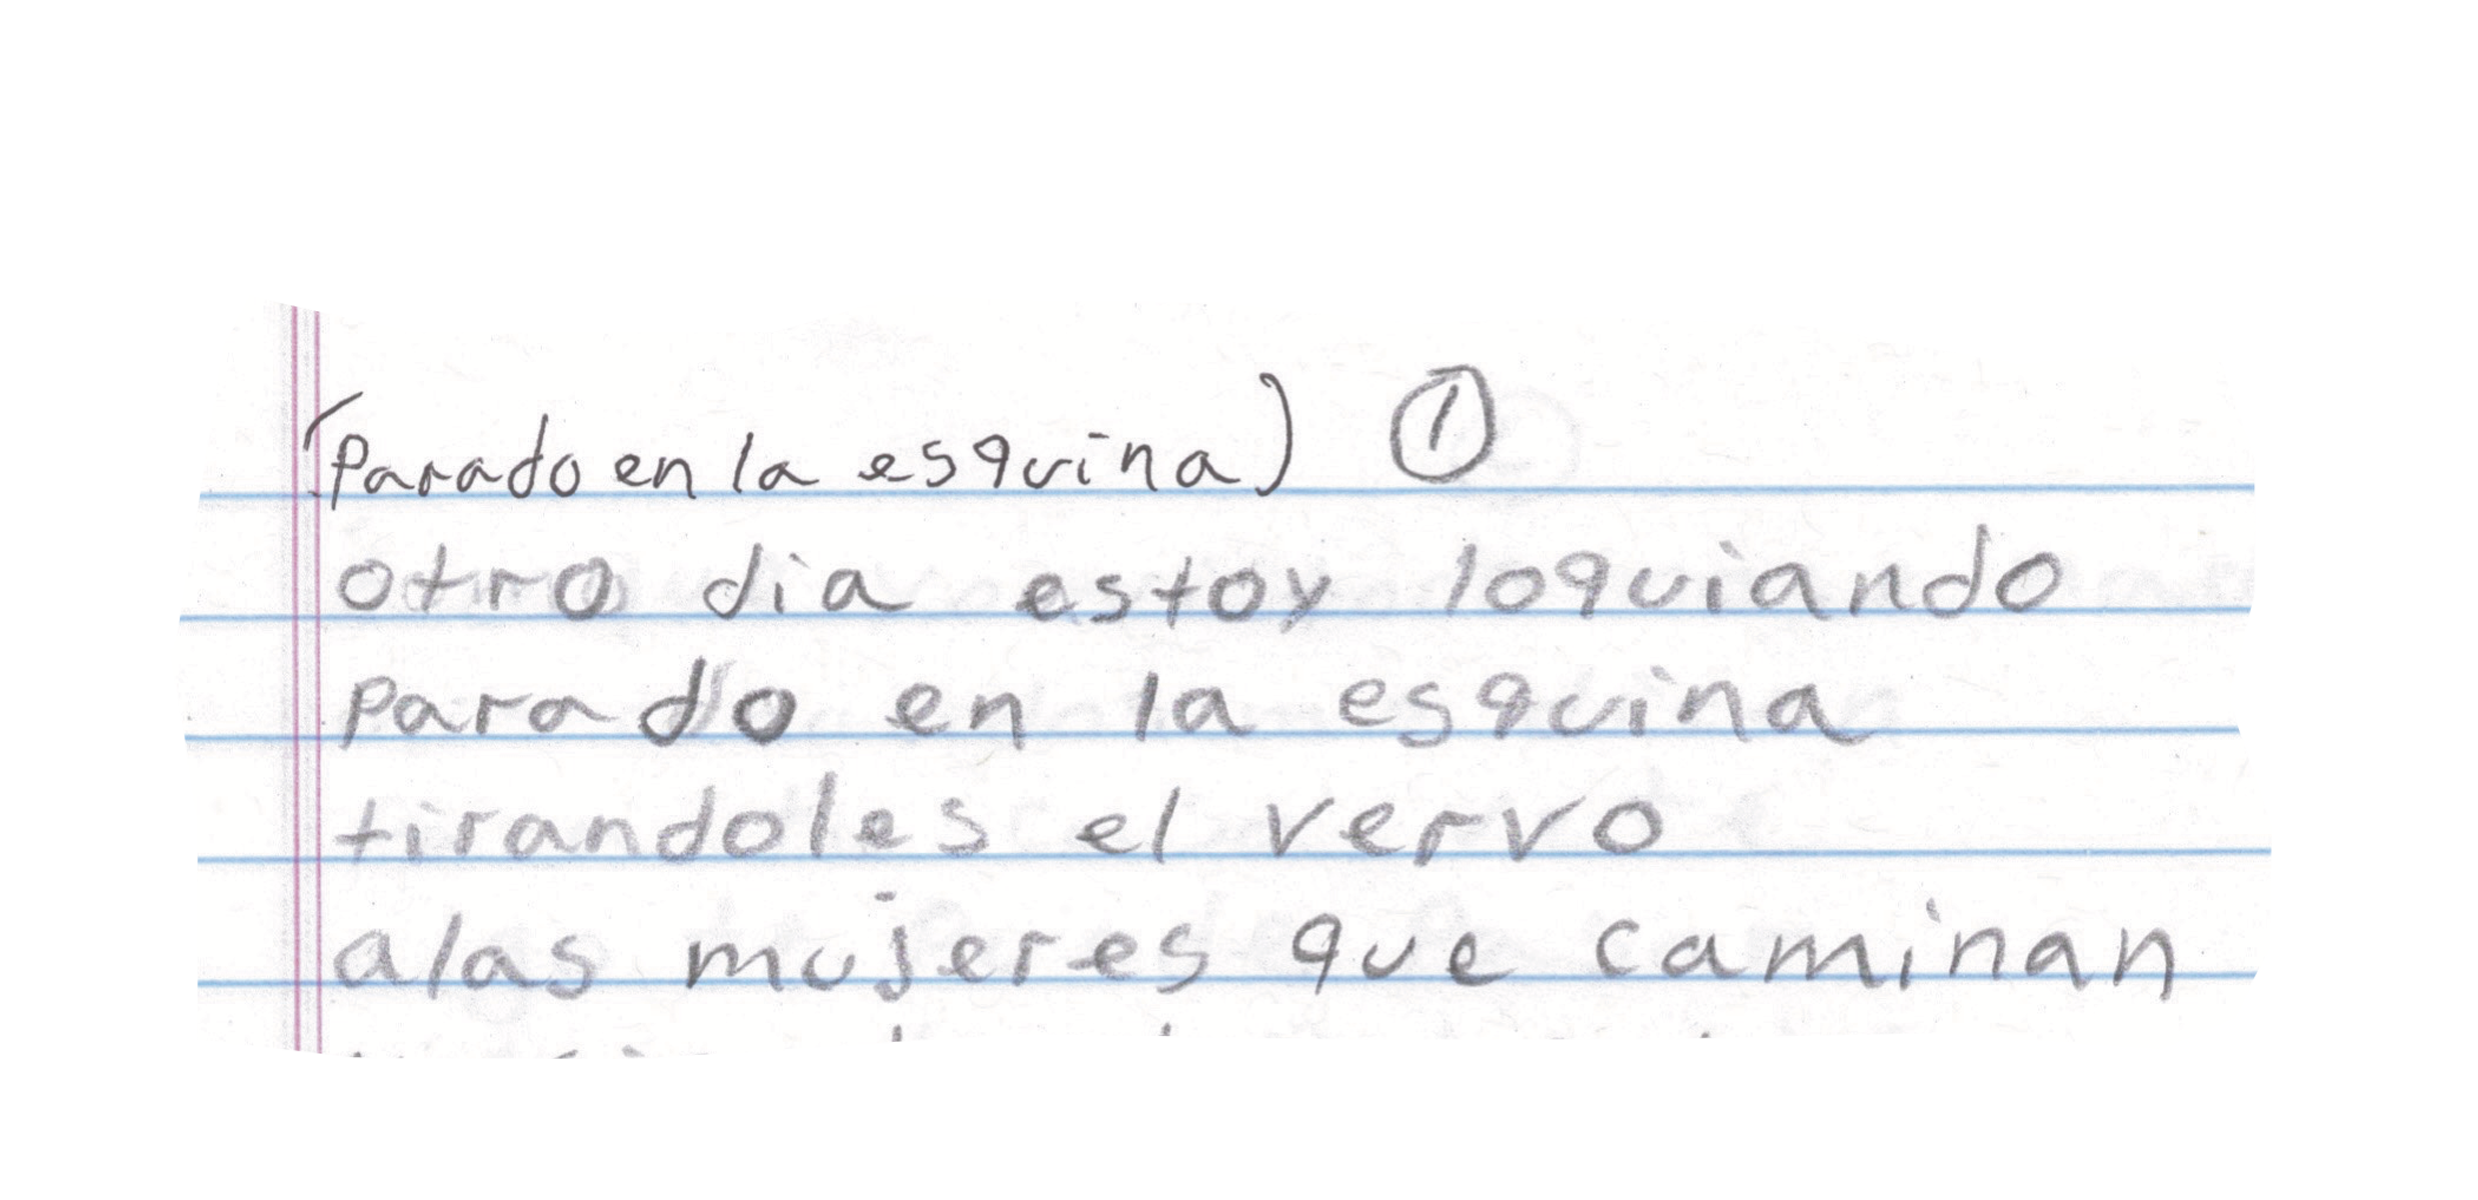 (Parado en la esquina) 1
otro dia estoy loquiando
parado en la esquina
tirandoles el vervo
alas mujeres que caminan